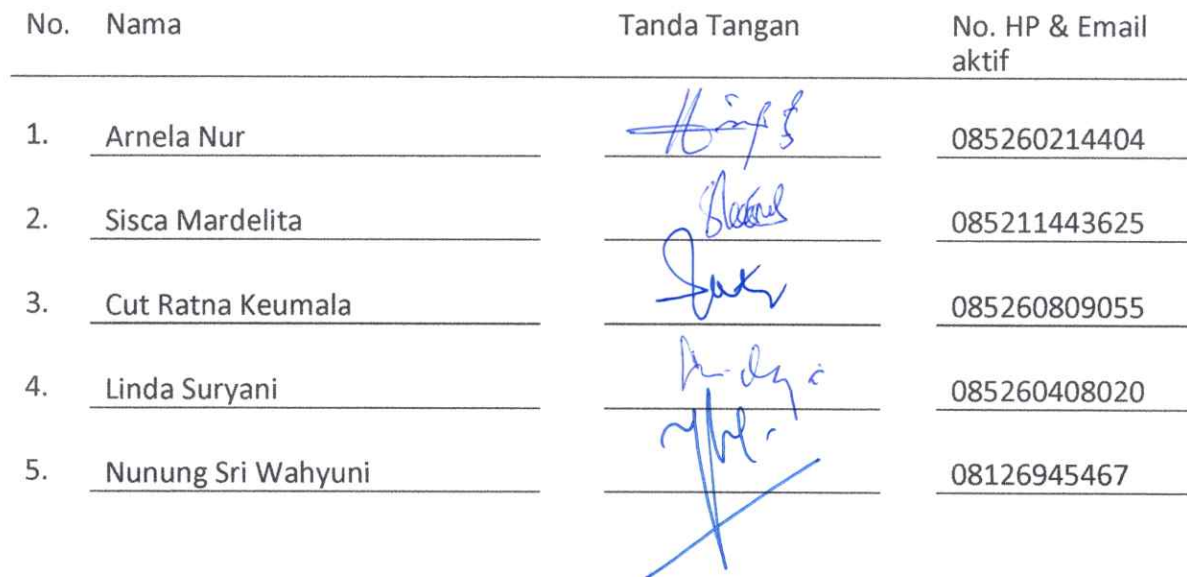 No. Nama Tanda Tangan No. HP & Email
aktif
1. Arnela Nur 085260214404
2. Sisca Mardelita 085211443625
3. Cut Ratna Keumala 085260809055
4. Linda Suryani 085260408020
5. Nunung Sri Wahyuni 08126945467